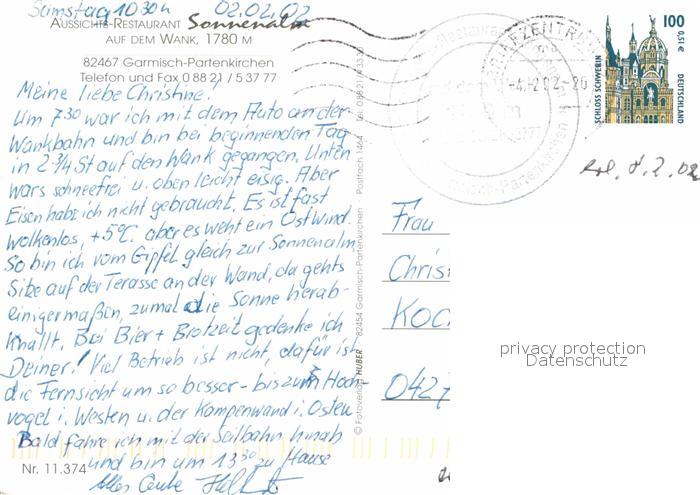 Samstag 10 30 h 02.02.02
AUSSICHTS-RESTAURANT Sonnenalm
AUF DEM WANK, 1780 M
82467 Garmisch-Partenkirchen
Telefon und Fax 0 88 21 / 5 37 77
Meine liebe Christine!
Um 7 30 war ich mit dem Auto an der
Wankbahn und bin bei beginnenden Tag
in 2 3/4 St auf den Wank gegangen. Unten
wars schneefrei u. oben leicht eisig. Aber
Eisen habe ich nicht gebraucht. Es ist fast
wolkenlos, +5°C. aber es weht ein Ostwind.
So bin ich vom Gipfel gleich zur Sonnenalm
Sitze auf der Terasse an der Wand, da gehts
einigermaßen, zumal die Sonne herab-
knallt. Bei Bier + Brotzeit gedenke ich
Deiner! Viel Betrieb ist nicht, dafür ist
die Fernsicht um so besser - bis zum Hoch-
vogel i. Westen u. der Kampenwand i. Osten
Bald fahre ich mit der Seilbahn hinab
und bin um 13 30 zu Hause
Alles Gute
Nr. 11.374
© Fotoverlag HUBER 82454 Garmisch-Partenkirchen Postfach 1464
BRIEFZENTRUM
100
0,51 €
SCHLOSS SCHWERIN
DEUTSCHLAND
Garmisch-Partenkirchen
Frau
Christ
Koc
0427
privacy protection
Datenschutz